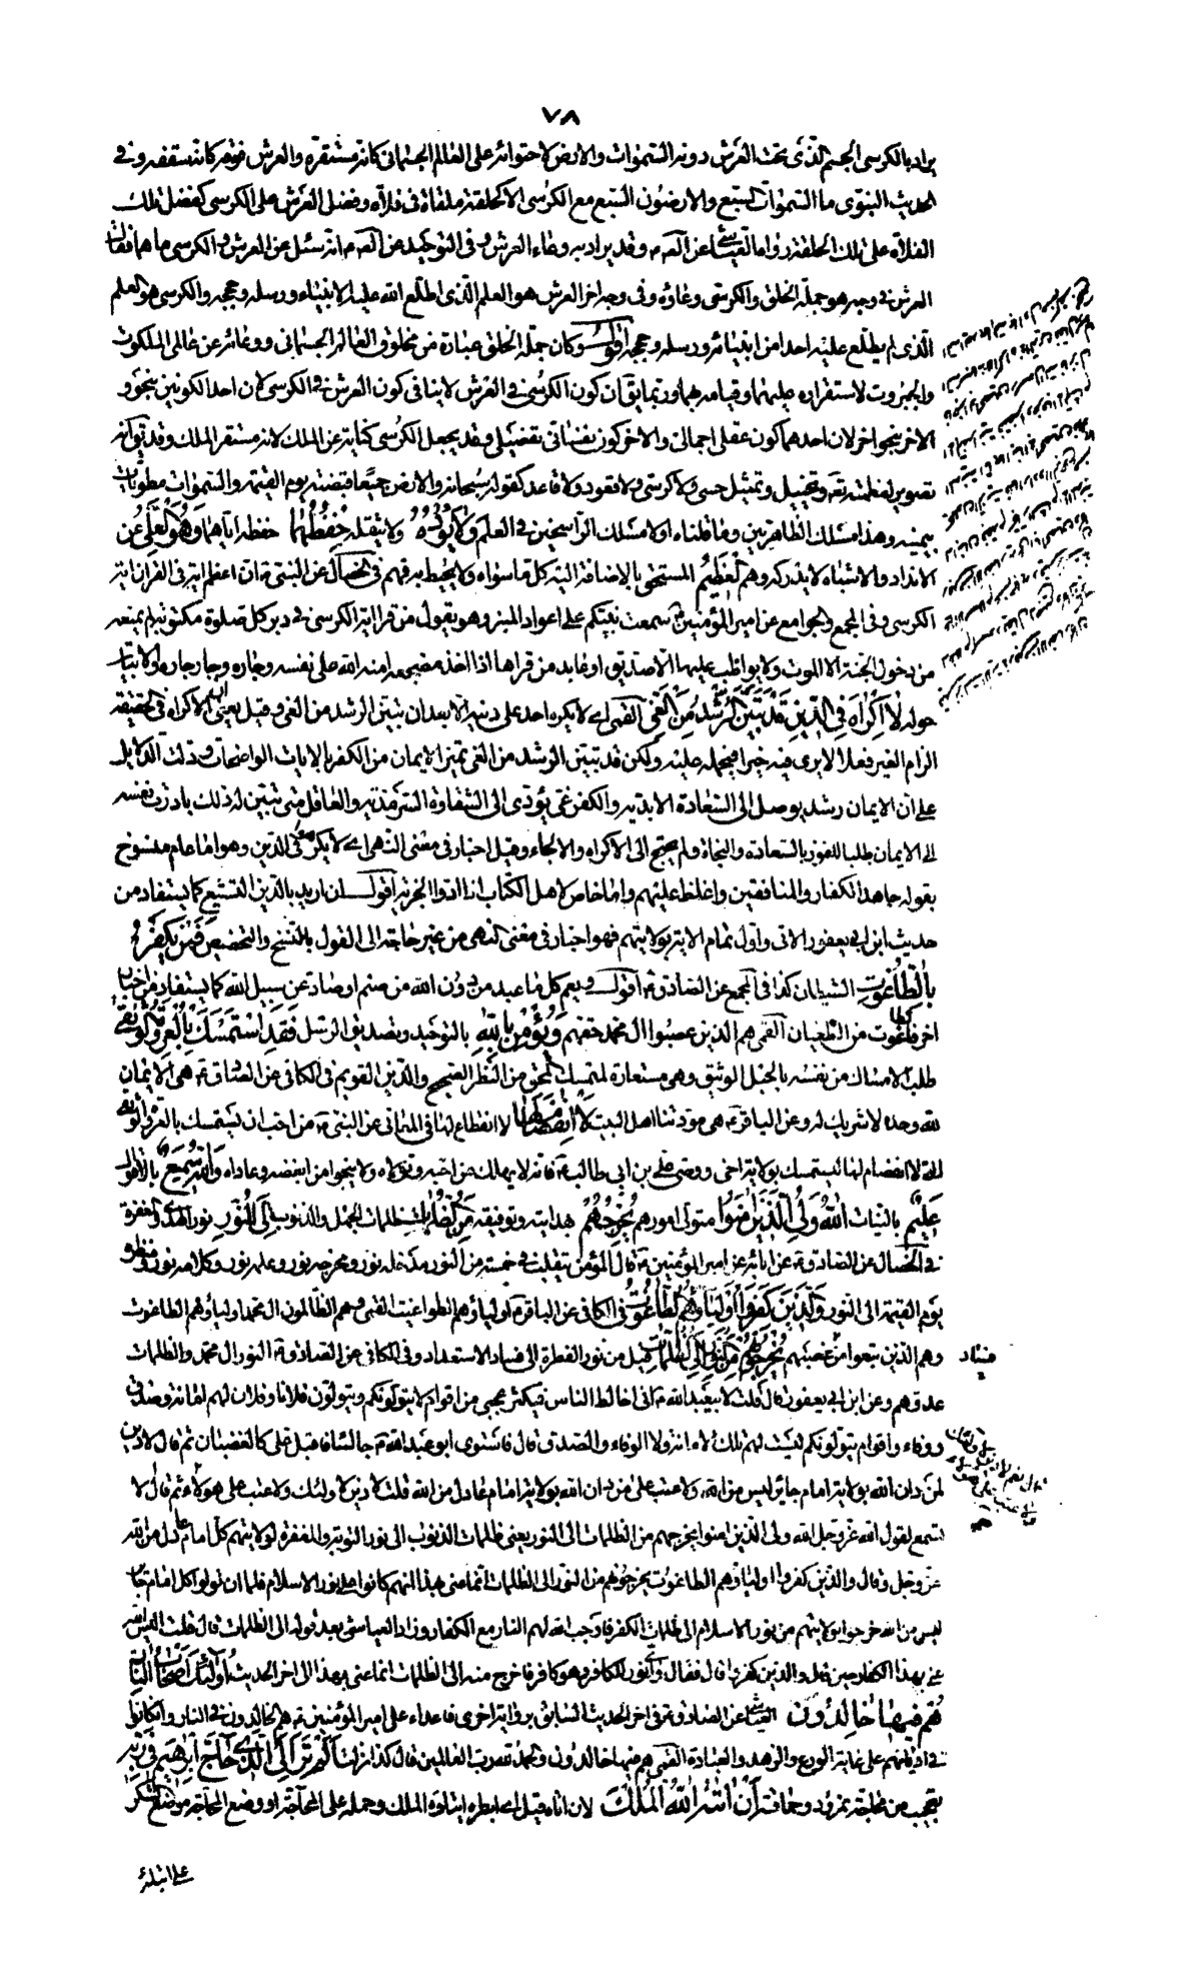 ٧٨
يراد بالكرسي الجسم الذي تحت العرش دونه السموات والارض لاحتوائه على العالم الجسماني كانه مستقره والعرش فوقه كانه سقفه وفي
الحديث النبوي ما السموات السبع والارضون السبع مع الكرسي الا كحلقة ملقاة في فلاة وفضل العرش على الكرسي كفضل تلك
الفلاة على تلك الحلقة رواها العياشي عن الصم وقد يراد به وعاء العرش وفي التوحيد عن الصم انه سئل عن العرش والكرسي ما هما فقال
العرش في وجه هو جملة الخلق والكرسي وعاؤه وفي وجه اخر العرش هو العلم الذي اطلع الله عليه الانبياء ورسله وحججه والكرسي هو العلم
الذي لم يطلع عليه احدا من انبيائه ورسله وحججه اقول وكان جملة الخلق عبارة عن مخلوق العالم الجسماني ووعائه عن عالمي الملكوت
والجبروت لاستقراره عليهما وقيامه بهما وربما يق ان كون الكرسي في العرش لا ينافي كون العرش في الكرسي لان احد الكونين بنحو و
الاخر بنحو اخر لان احدهما كون عقلي اجمالي والاخر كون نفساني تفصيلي وقد يجعل الكرسي كناية عن الملك لانه مستقر الملك وقد يق انه
تصوير لعظمته تع وتخييل وتمثيل حسي ولا كرسي ولا قعود ولا قاعد كقوله سبحانه والارض جميعا قبضته يوم القيمة والسموات مطويات
بيمينه وهذا مسلك الظاهريين وما قلناه اولا مسلك الراسخين في العلم ولا يؤده ولا يثقله حفظهما حفظه اياهما وهو العلي عن
الانداد والاشباه لا يدركه وهم العظيم المستحقر بالاضافة اليه كل ما سواه ولا يحيط به فهم في الخصال عن النبي ص ان اعظم اية في القران اية
الكرسي وفي المجمع والجوامع عن امير المؤمنين ع سمعت نبيكم على اعواد المنبر وهو يقول من قرا اية الكرسي في دبر كل صلوة مكتوبة لم يمنعه
من دخول الجنة الا الموت ولا يواظب عليها الا صديق او عابد من قراها اذا اخذ مضجعه امنه الله على نفسه وجاره وجار جاره والابيات
حوله لا اكراه في الدين قد تبين الرشد من الغي القمي اي لا يكره احد على دينه الا بعد ان تبين الرشد من الغي وقيل يعني ان الاكراه في الحقيقة
الزام الغير فعلا لا يرى فيه خيرا فيحمله عليه ولكن قد تبين الرشد من الغي تميز الايمان من الكفر بالايات الواضحات ودلت الدلايل
على ان الايمان رشد يوصل الى السعادة الابدية والكفر غي يؤدي الى الشقاوة السرمدية والعاقل متى تبين له ذلك بادرت نفسه
الى الايمان طلبا للفوز بالسعادة والنجاة ولم يحتج الى الاكراه والالجاء وقيل اخبار في معنى النهي اي لا تكرهوا في الدين وهو اما عام منسوخ
بقوله جاهد الكفار والمنافقين واغلظ عليهم واما خاص لاهل الكتاب اذا ادوا الجزية اقول ان اريد بالدين التشيع كما يستفاد من
حديث ابن ابي يعفور الاتي واول تمام الاية بولايتهم فهو اخبار في معنى النهي من غير حاجة الى القول بالنسخ والتخصيص فمن يكفر
بالطاغوت الشيطان كذا في المجمع عن الصادق ع اقول ويعم كل ما عبد من دون الله من صنم او صاد عن سبيل الله كما يستفاد من اخبار
اخر فالطاغوت من الطغيان القمي هم الذين غصبوا ال محمد حقهم ويؤمن بالله بالتوحيد وتصديق الرسل فقد استمسك بالعروة الوثقى
طلب الامساك من نفسه بالحبل الوثيق وهي مستعارة لمتمسك المحق من النظر الصحيح والدين القويم في الكافي عن الصادق ع هي الايمان
بالله وحده لا شريك له وعن الباقر ع هي مودتنا اهل البيت لا انفصام لها لا انقطاع لها في المعاني عن النبي ص من احب ان يستمسك بالعروة الوثقى
التي لا انفصام لها فليستمسك بولاية اخي ووصيي علي بن ابي طالب ع فانه لا يهلك من احبه وتولاه ولا ينجو من ابغضه وعاداه والله سميع بالاقوال
عليم بالنيات الله ولي الذين امنوا متولي امورهم يخرجهم بهدايته وتوفيقه من الظلمات ظلمات الجهل والذنوب الى النور نور الهدى والمغفرة
في الخصال عن الصادق ع عن ابائه عن امير المؤمنين ع قال المؤمن يتقلب في خمسة من النور مدخله نور ومخرجه نور وعلمه نور وكلامه نور ومنظره
يوم القيمة الى النور والذين كفروا اولياؤهم الطاغوت في الكافي عن الباقر ع اولياؤهم الطواغيت القمي وهم الظالمون ال محمد اولياؤهم الطاغوت
وهم الذين تبعوا من غصبهم يخرجونهم من النور الى الظلمات قيل من نور الفطرة الى فساد الاستعداد وفي الكافي عن الصادق ع النور ال محمد والظلمات
فساد
عدوهم وعن ابن ابي يعفور قال قلت لابي عبد الله ع اني اخالط الناس فيكثر عجبي من اقوام لا يتولونكم ويتولون فلانا وفلانا لهم امانة وصدق
ووفاء واقوام يتولونكم ليست لهم تلك الامانة ولا الوفاء والصدق قال فاستوى ابو عبد الله ع جالسا فاقبل علي كالغضبان ثم قال لا دين
لمن دان الله بولاية امام جائر ليس من الله ولا عتب على من دان الله بولاية امام عادل من الله قلت لا دين لاولئك ولا عتب على هؤلاء ثم قال لا
تسمع لقول الله عز وجل الله ولي الذين امنوا يخرجهم من الظلمات الى النور يعني ظلمات الذنوب الى نور التوبة والمغفرة لولايتهم كل امام عادل من الله
عز وجل وقال والذين كفروا اولياؤهم الطاغوت يخرجونهم من النور الى الظلمات انما عنى بهذا انهم كانوا على نور الاسلام فلما ان تولوا كل امام جائر
ليس من الله خرجوا بولايتهم من نور الاسلام الى ظلمات الكفر فاوجب الله لهم النار مع الكفار وزاد العياشي بعد قوله الى الظلمات قال قلت اليس الله
عنى بهذا الكفار حين قال والذين كفروا قال فقال واي نور للكافر وهو كافر فاخرج منه الى الظلمات انما عنى بهذا الى اخر الحديث اولئك اصحاب النار
هم فيها خالدون العياشي عن الصادق ع في اخر الحديث السابق برواية اخرى فاعداء علي امير المؤمنين ع هم الخالدون في النار وان كانوا
في اديانهم على غاية الورع والزهد والعبادة القمي هم فيها خالدون والحمد لله رب العالمين قال كذا نزلت الم تر الى الذي حاج ابراهيم في ربه
تعجيب من محاجة نمرود وحماقته ان اتاه الله الملك لان اتاه قيل اي ابطره ايتاؤه الملك وحمله على المحاجة او وضع المحاجة موضع الشكر
على ايتائه